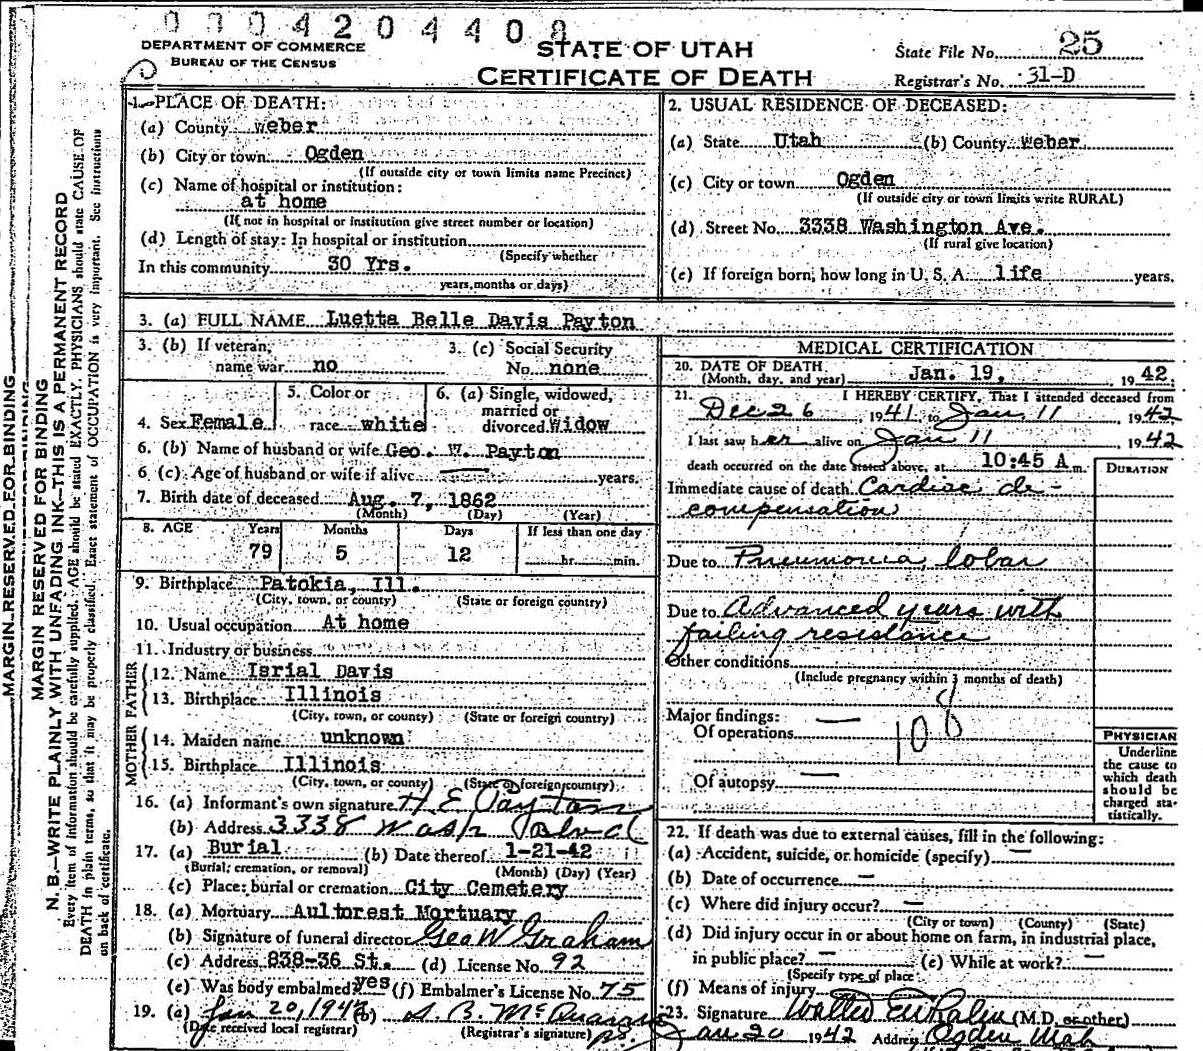 0004204408
DEPARTMENT OF COMMERCE
BUREAU OF THE CENSUS
STATE OF UTAH
CERTIFICATE OF DEATH
State File No. 25
Registrar's No. 31-D
MARGIN RESERVED FOR BINDING
MARGIN RESERVED FOR BINDING
N. B.—WRITE PLAINLY WITH UNFADING INK—THIS IS A PERMANENT RECORD
Every item of information should be carefully supplied. AGE should be stated EXACTLY. PHYSICIANS should state CAUSE OF
DEATH in plain terms, so that it may be properly classified. Exact statement of OCCUPATION is very important. See instructions
on back of certificate.
1. PLACE OF DEATH:
(a) County Weber
(b) City or town Ogden
(If outside city or town limits name Precinct)
(c) Name of hospital or institution:
at home
(If not in hospital or institution give street number or location)
(d) Length of stay: In hospital or institution
(Specify whether
In this community 30 Yrs.
years, months or days)
2. USUAL RESIDENCE OF DECEASED:
(a) State Utah (b) County Weber
(c) City or town Ogden
(If outside city or town limits write RURAL)
(d) Street No. 3338 Washington Ave.
(If rural give location)
(e) If foreign born, how long in U. S. A. life years.
3. (a) FULL NAME Luetta Belle Davis Payton
3. (b) If veteran, 3. (c) Social Security
name war no No. none
5. Color or 6. (a) Single, widowed,
married or
4. Sex Female race white divorced Widow
6. (b) Name of husband or wife Geo. W. Payton
6 (c). Age of husband or wife if alive — years.
7. Birth date of deceased Aug. 7, 1862
(Month) (Day) (Year)
8. AGE Years Months Days If less than one day
79 5 12 hr. min.
9. Birthplace Patokia, Ill.
(City, town, or county) (State or foreign country)
10. Usual occupation At home
11. Industry or business
FATHER
12. Name Isrial Davis
13. Birthplace Illinois
(City, town, or county) (State or foreign country)
MOTHER
14. Maiden name unknown
15. Birthplace Illinois
(City, town, or county) (State or foreign country)
16. (a) Informant's own signature H E Payton
(b) Address 3338 Wash Blvd
17. (a) Burial (b) Date thereof 1-21-42
(Burial, cremation, or removal) (Month) (Day) (Year)
(c) Place: burial or cremation City Cemetery
18. (a) Mortuary Aultorest Mortuary
(b) Signature of funeral director Geo W Graham
(c) Address 838-36 St. (d) License No. 92
(e) Was body embalmed? yes (f) Embalmer's License No. 75
19. (a) Jan 20, 1942 (b)
(Date received local registrar) (Registrar's signature)
MEDICAL CERTIFICATION
20. DATE OF DEATH
(Month, day, and year) Jan. 19, 1942.
21. I HEREBY CERTIFY, That I attended deceased from
Dec 26 1941 to Jan 11 1942
I last saw her alive on Jan 11 1942
death occurred on the date stated above, at 10:45 A m.
DURATION
Immediate cause of death Cardiac de-
compensation
Due to Pneumonia lobar
Due to Advanced years with
failing resistance
Other conditions
(Include pregnancy within 3 months of death)
Major findings:
Of operations —
108
Of autopsy —
PHYSICIAN
Underline
the cause to
which death
should be
charged sta-
tistically.
22. If death was due to external causes, fill in the following:
(a) Accident, suicide, or homicide (specify) —
(b) Date of occurrence —
(c) Where did injury occur? —
(City or town) (County) (State)
(d) Did injury occur in or about home on farm, in industrial place,
in public place? — (e) While at work? —
(Specify type of place)
(f) Means of injury
23. Signature (M.D. or other)
Jan 20 1942 Address Ogden Utah